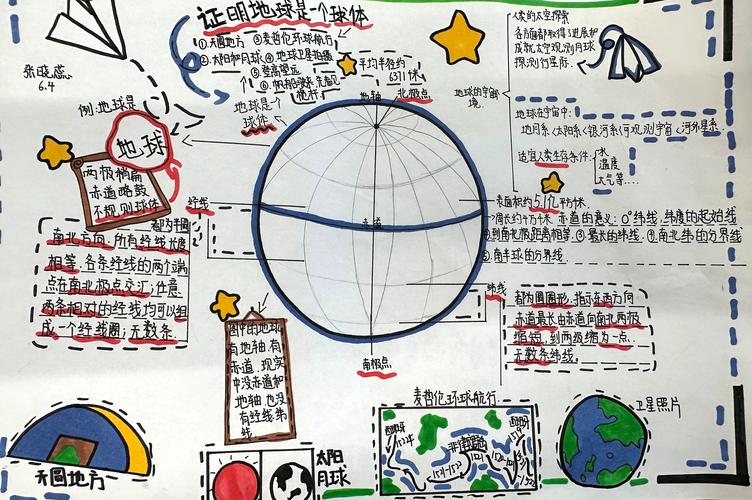 证明地球是一个球体
①天圆地方 ③麦哲伦环球航行
②太阳和月球 ④地球卫星拍摄
⑤登高望远
张晓蕊
6.4
例:地球是
地球
两极稍扁
赤道略鼓
不规则球体
地球是一个
球体
平均半径约
6371千米
地轴
北极点
赤道
南极点
经线
都为半圆
南北方向,所有经线长度
相等,各条经线的两个端
点在南北极点交汇,任意
两条相对的经线均可以组
成一个经线圈;无数条.
人类的太空探索
各方面都取得了进展和
成就,太空观测,月球
探测,行星际.
地球的宇宙
境.
地球在宇宙中:
地月系<太阳系<银河系<可观测宇宙
河外星系
适宜人类生存条件:
水
温度
大气等....
表面积约5.1亿平方千米
周长约4万千米 赤道的意义:0°纬线,纬度的起始线
②到南北极距离相等.③最大的纬线.④南北纬的分界线
⑤南北半球的分界线.
纬线
都为圆形,指示东西方向
赤道最长由赤道向南北两极
缩短,到两极缩为一点.
无数条纬线.
图中的地球
有地轴,有
赤道,现实
中没赤道和
地轴,也没
有经线、纬
线
天圆地方
太阳
月球
麦哲伦环球航行
卫星照片